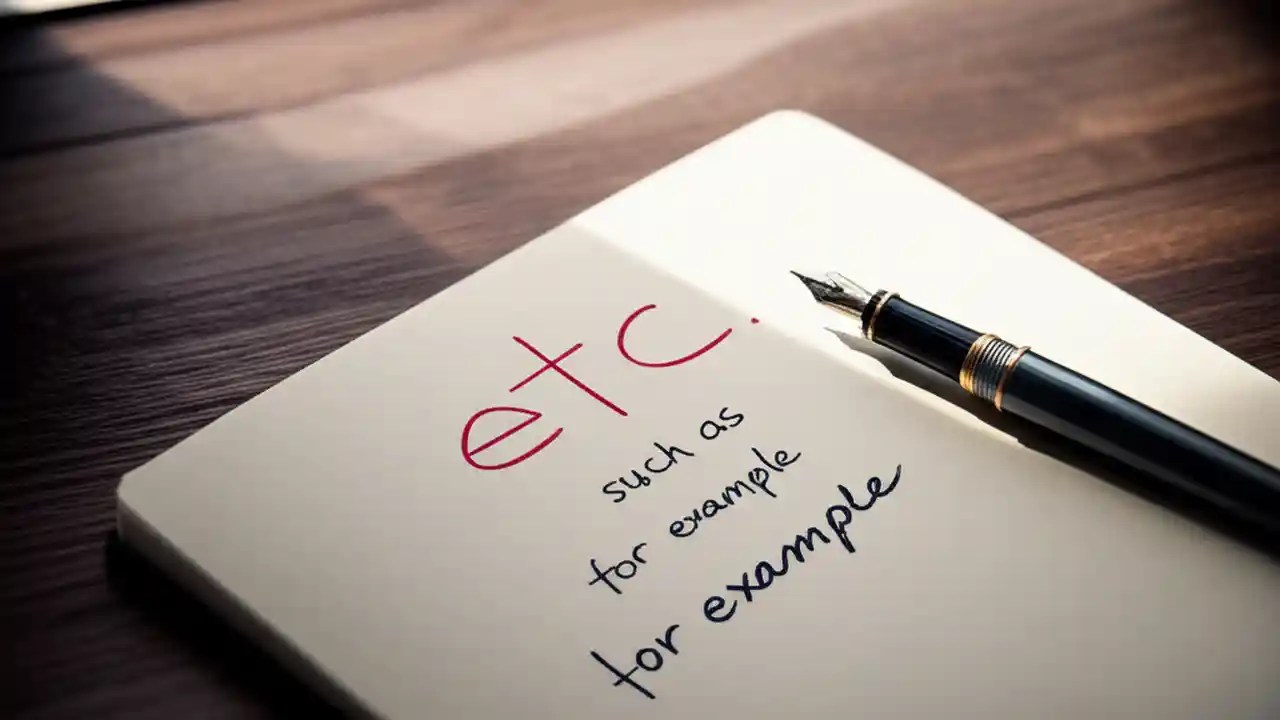 etc.
such as
for example
for example